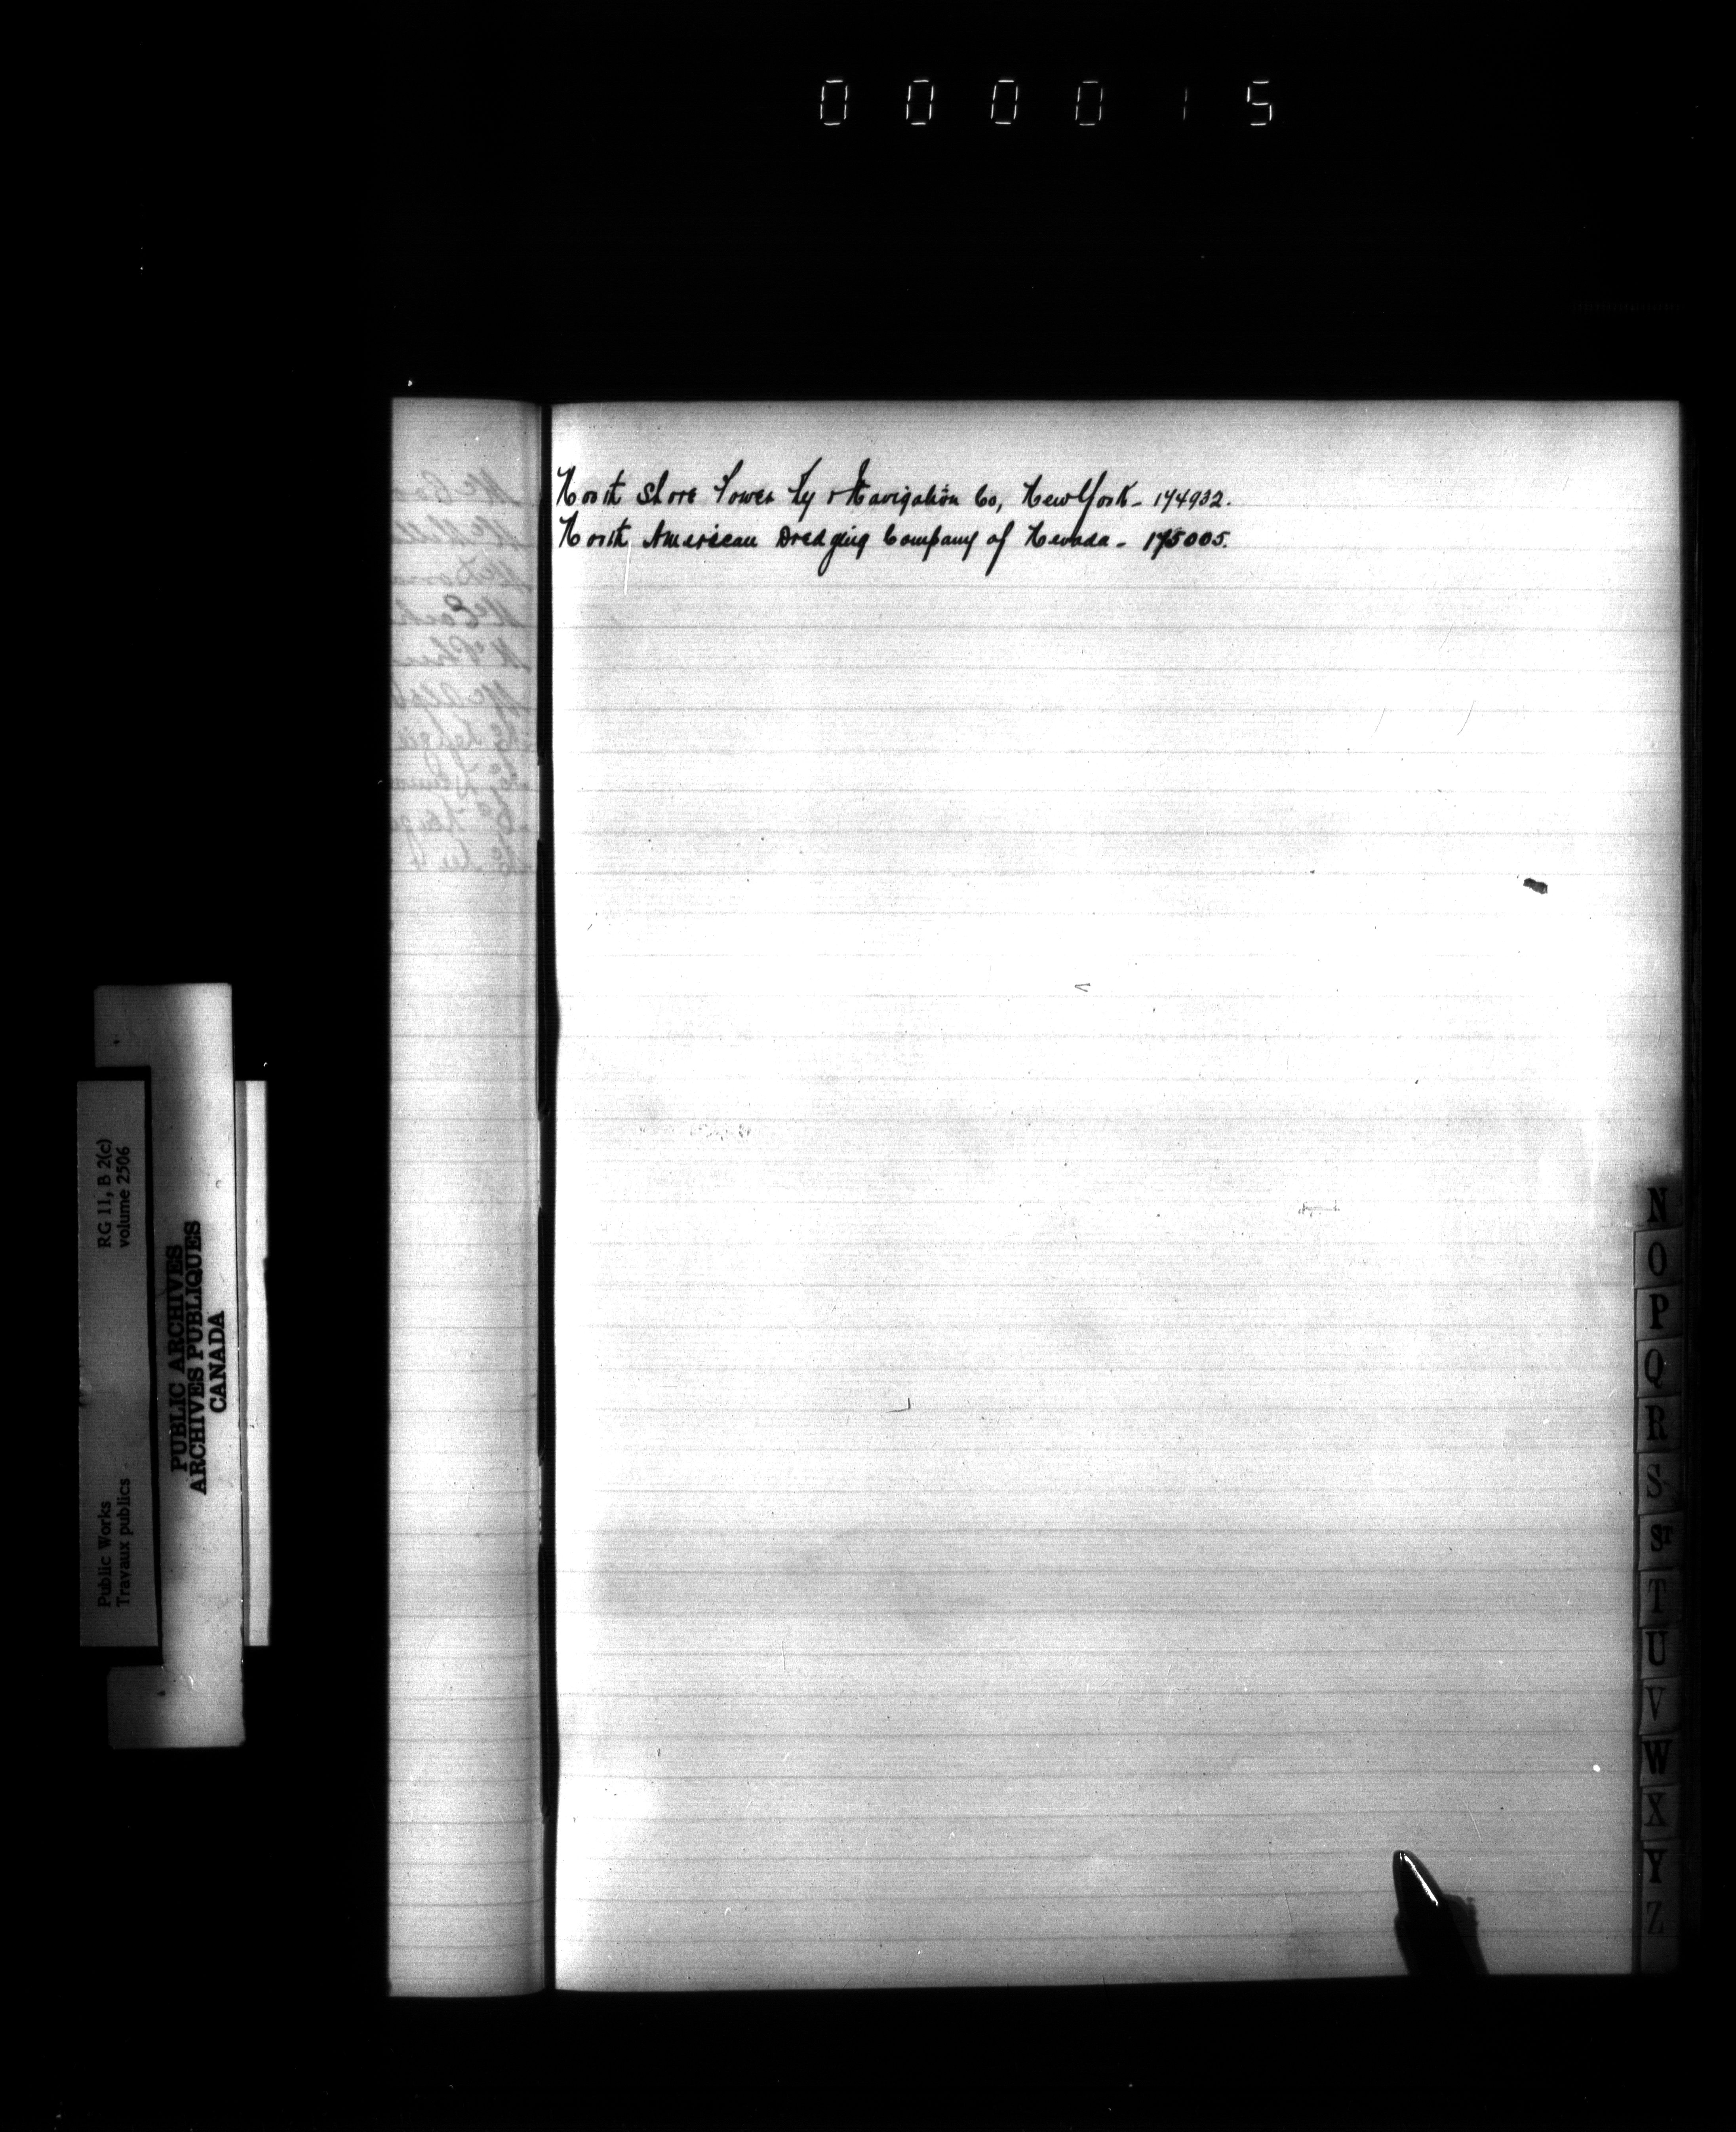 000015
North Shore Power Ry & Navigation Co, New York - 174932.
North American Dredging Company of Nevada - 175005.
RG 11, B 2(c)
volume 2506
PUBLIC ARCHIVES
ARCHIVES PUBLIQUES
CANADA
Public Works
Travaux publics
N
O
P
Q
R
S
T
U
V
W
X
Y
Z